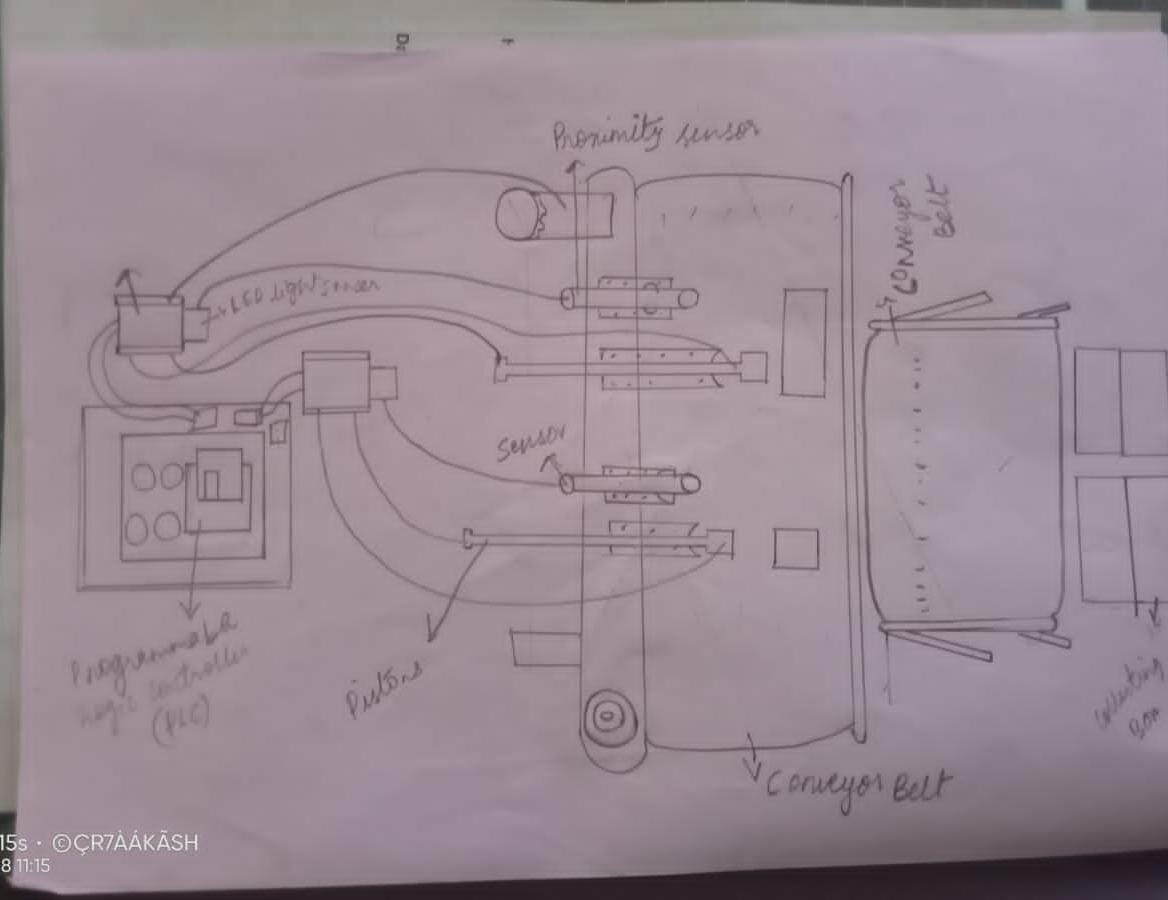 Proximity sensor
Conveyor
Belt
LED light sensor
Sensor
Programmable
logic controller
(PLC)
Pistons
Conveyor Belt
Collecting
Box
15s · ©ÇR7ÀÁKÃSH
8 11:15